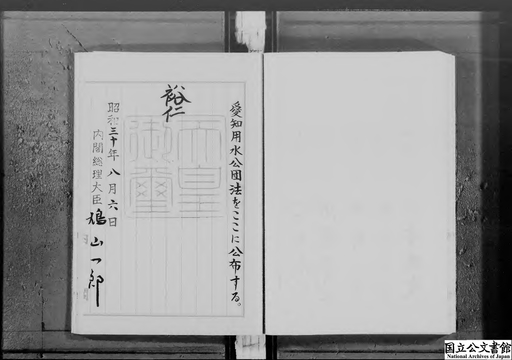 愛知用水公団法をここに公布する。
裕仁
天皇
御璽
昭和三十年八月六日
内閣総理大臣 鳩山一郎
国立公文書館
National Archives of Japan